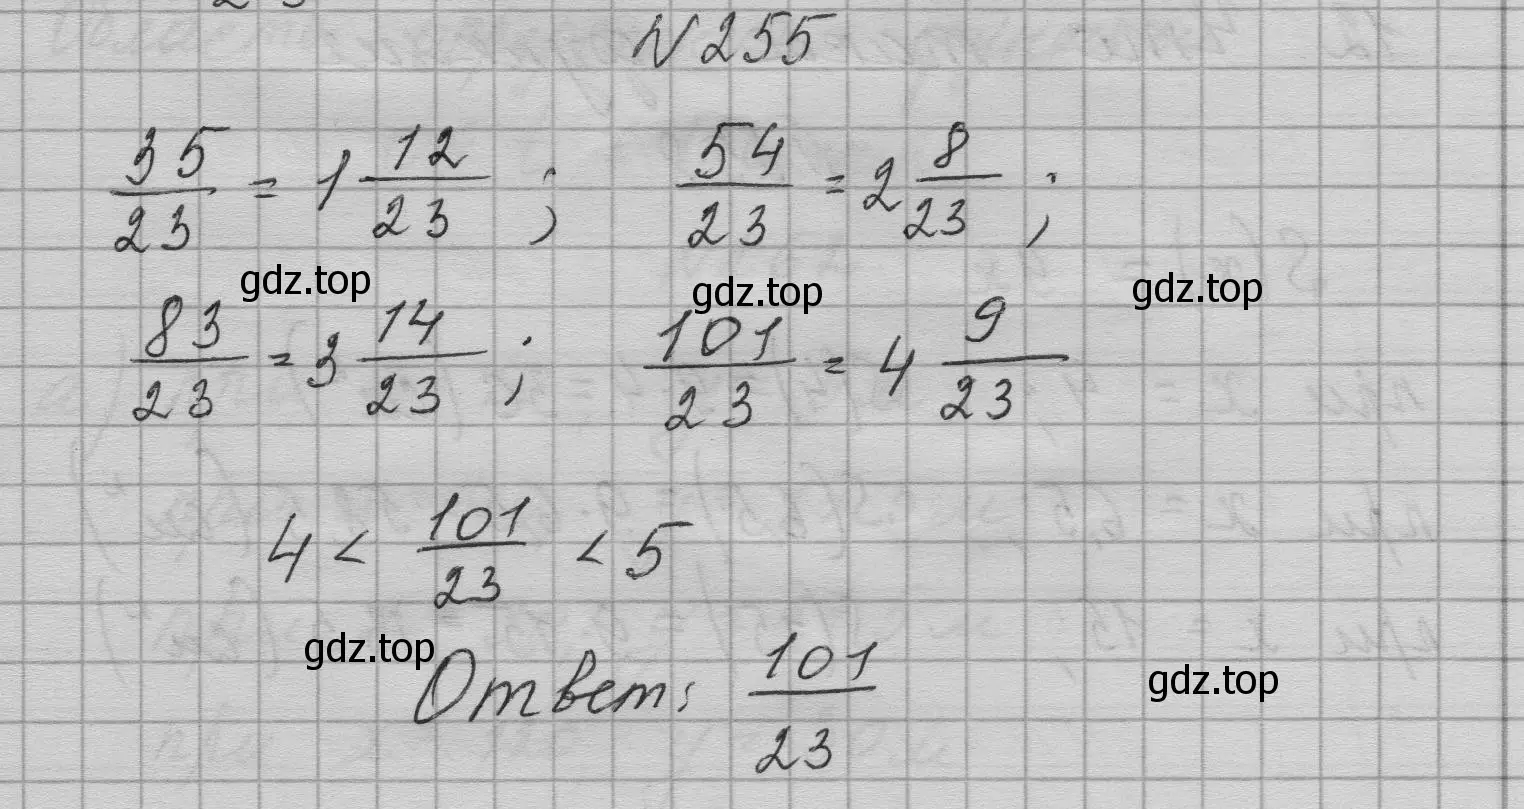 N 255
35/23 = 1 12/23 ; 54/23 = 2 8/23 ;
gdz.top gdz.top gdz.top
83/23 = 3 14/23 ; 101/23 = 4 9/23
4 < 101/23 < 5
gdz.top
Ответ: 101/23
gdz.top